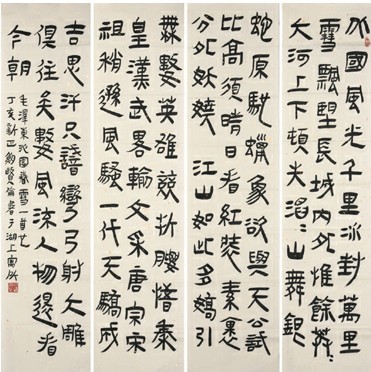 北國風光千里冰封萬里
雪飄望長城內外惟餘莽〻
大河上下頓失滔〻山舞銀
蛇原馳蠟象欲與天公試
比高須晴日看紅裝素裹
分外妖嬈 江山如此多嬌引
無數英雄競折腰惜秦
皇漢武略輸文采唐宗宋
祖稍遜風騷一代天驕成
吉思汗只識彎弓射大雕
俱往矣數風流人物還看
今朝
毛澤東沁園春雪一首
丁亥新正 書于湖上寓所